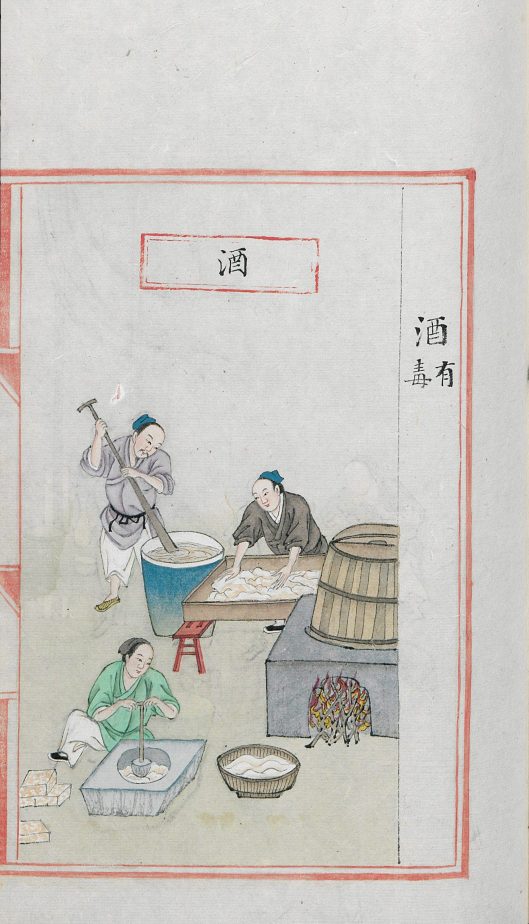 酒有毒
酒